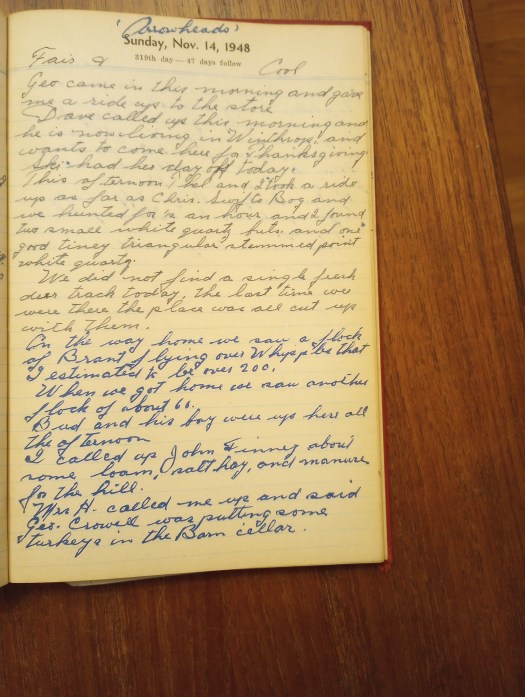 'Arrowheads'
Sunday, Nov. 14, 1948
319th day — 47 days follow
Fair & Cool
Geo came in this morning and gave
me a ride up to the store
Dave called up this morning and
he is now living in Winthrop. and
wants to come here for Thanksgiving
had her day off today.
This afternoon Thel and I took a ride
up as far as Chris. Swift Bog and
we hunted for ½ an hour and I found
two small white quartz bits. and one
good tiney triangular stemmed point
white quartz.
We did not find a single fresh
deer track today. the last time we
were there the place was all cut up
with them.
On the way home we saw a flock
of Brant flying over that
I estimated to be over 200.
When we got home we saw another
flock of about 60.
Bud and his boy were up here all
the afternoon
I called up John Finney about
some loam, salt hay, and manure
for the hill.
Mrs H. called me up and said
Geo. Crowell was putting some
turkeys in the Barn cellar.